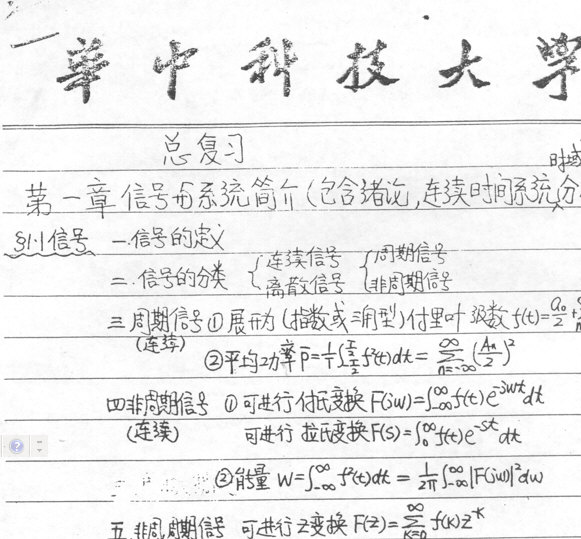 華中科技大學
总复习
时域
第一章 信号与系统简介(包含绪论,连续时间系统分
§1-1信号 一.信号的定义
二.信号的分类 {连续信号 离散信号 {周期信号 非周期信号
三 周期信号 ① 展开为(指数或三角型)付里叶级数 f(t)=a₀/2+
(连续)
②平均功率 P=1/T∫_{-T/2}^{T/2}f²(t)dt=∑_{n=-∞}^{∞}(Aₙ/2)²
四 非周期信号 ① 可进行付氏变换 F(jw)=∫_{-∞}^{∞}f(t)e^{-jwt}dt
(连续) 可进行 拉氏变换 F(S)=∫₀^∞f(t)e^{-st}dt
②能量 W=∫_{-∞}^{∞}f²(t)dt=1/2π∫_{-∞}^{∞}|F(jw)|²dw
五.非周期信号 可进行Z变换 F(Z)=∑_{K=0}^{∞}f(K)Z^{-K}